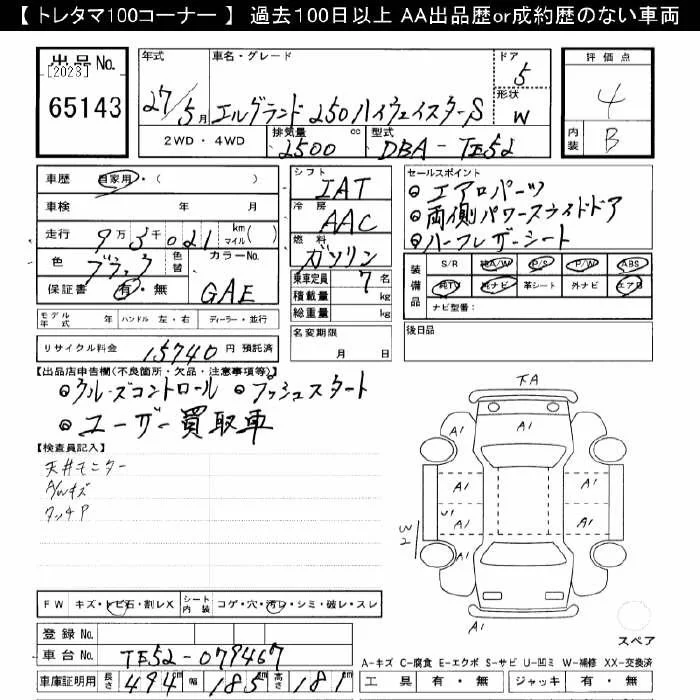 【 トレタマ100コーナー 】 過去100日以上 AA出品歴or成約歴のない車両
出品No.
[2023]
65143
年式
27/5月
車名・グレード
エルグランド 250ハイウェイスターS
ドア
5
形状
W
2WD・4WD
排気量
2500 cc
型式
DBA-TE52
評価点
4
内装
B
車歴 自家用・( )
車検 年 月
走行 9万3千021 km マイル( )
色 ブラック 色替
カラーNo.
GAE
保証書 有・無
シフト
IAT
冷房
AAC
燃料
ガソリン
乗車定員 7名
積載量 kg
総重量 kg
セールスポイント
◎エアロパーツ
◎両側パワースライドドア
◎ハーフレザーシート
装備品
S/R 純A/W P/S P/W ABS
純TV 純ナビ 革シート 外ナビ エアB
ナビ型番:
モデル年式 年 ハンドル 左・右 ディーラー・並行
リサイクル料金 15740 円 預託済
名変期限
月 日
後日品
【出品店申告欄(不良箇所・欠品・注意事項等)】
◎クルーズコントロール ◎プッシュスタート
◎ユーザー買取車
【検査員記入】
天井モニター
A/Wキズ
タッチP
下A
A1
A1
A1
A1
A1
U1
A1
A1
A1
A1
W2
A1
スペア
FW キズ・トビ石・割レX
シート内装 コゲ・穴・汚レ・シミ・破レ・スレ
登録No.
車台No. TE52-079467
車庫証明用 長さ 494cm 幅 185cm 高さ 181cm
A-キズ C-腐食 E-エクボ S-サビ U-凹ミ W-補修 XX-交換済
工具 有・無 ジャッキ 有・無